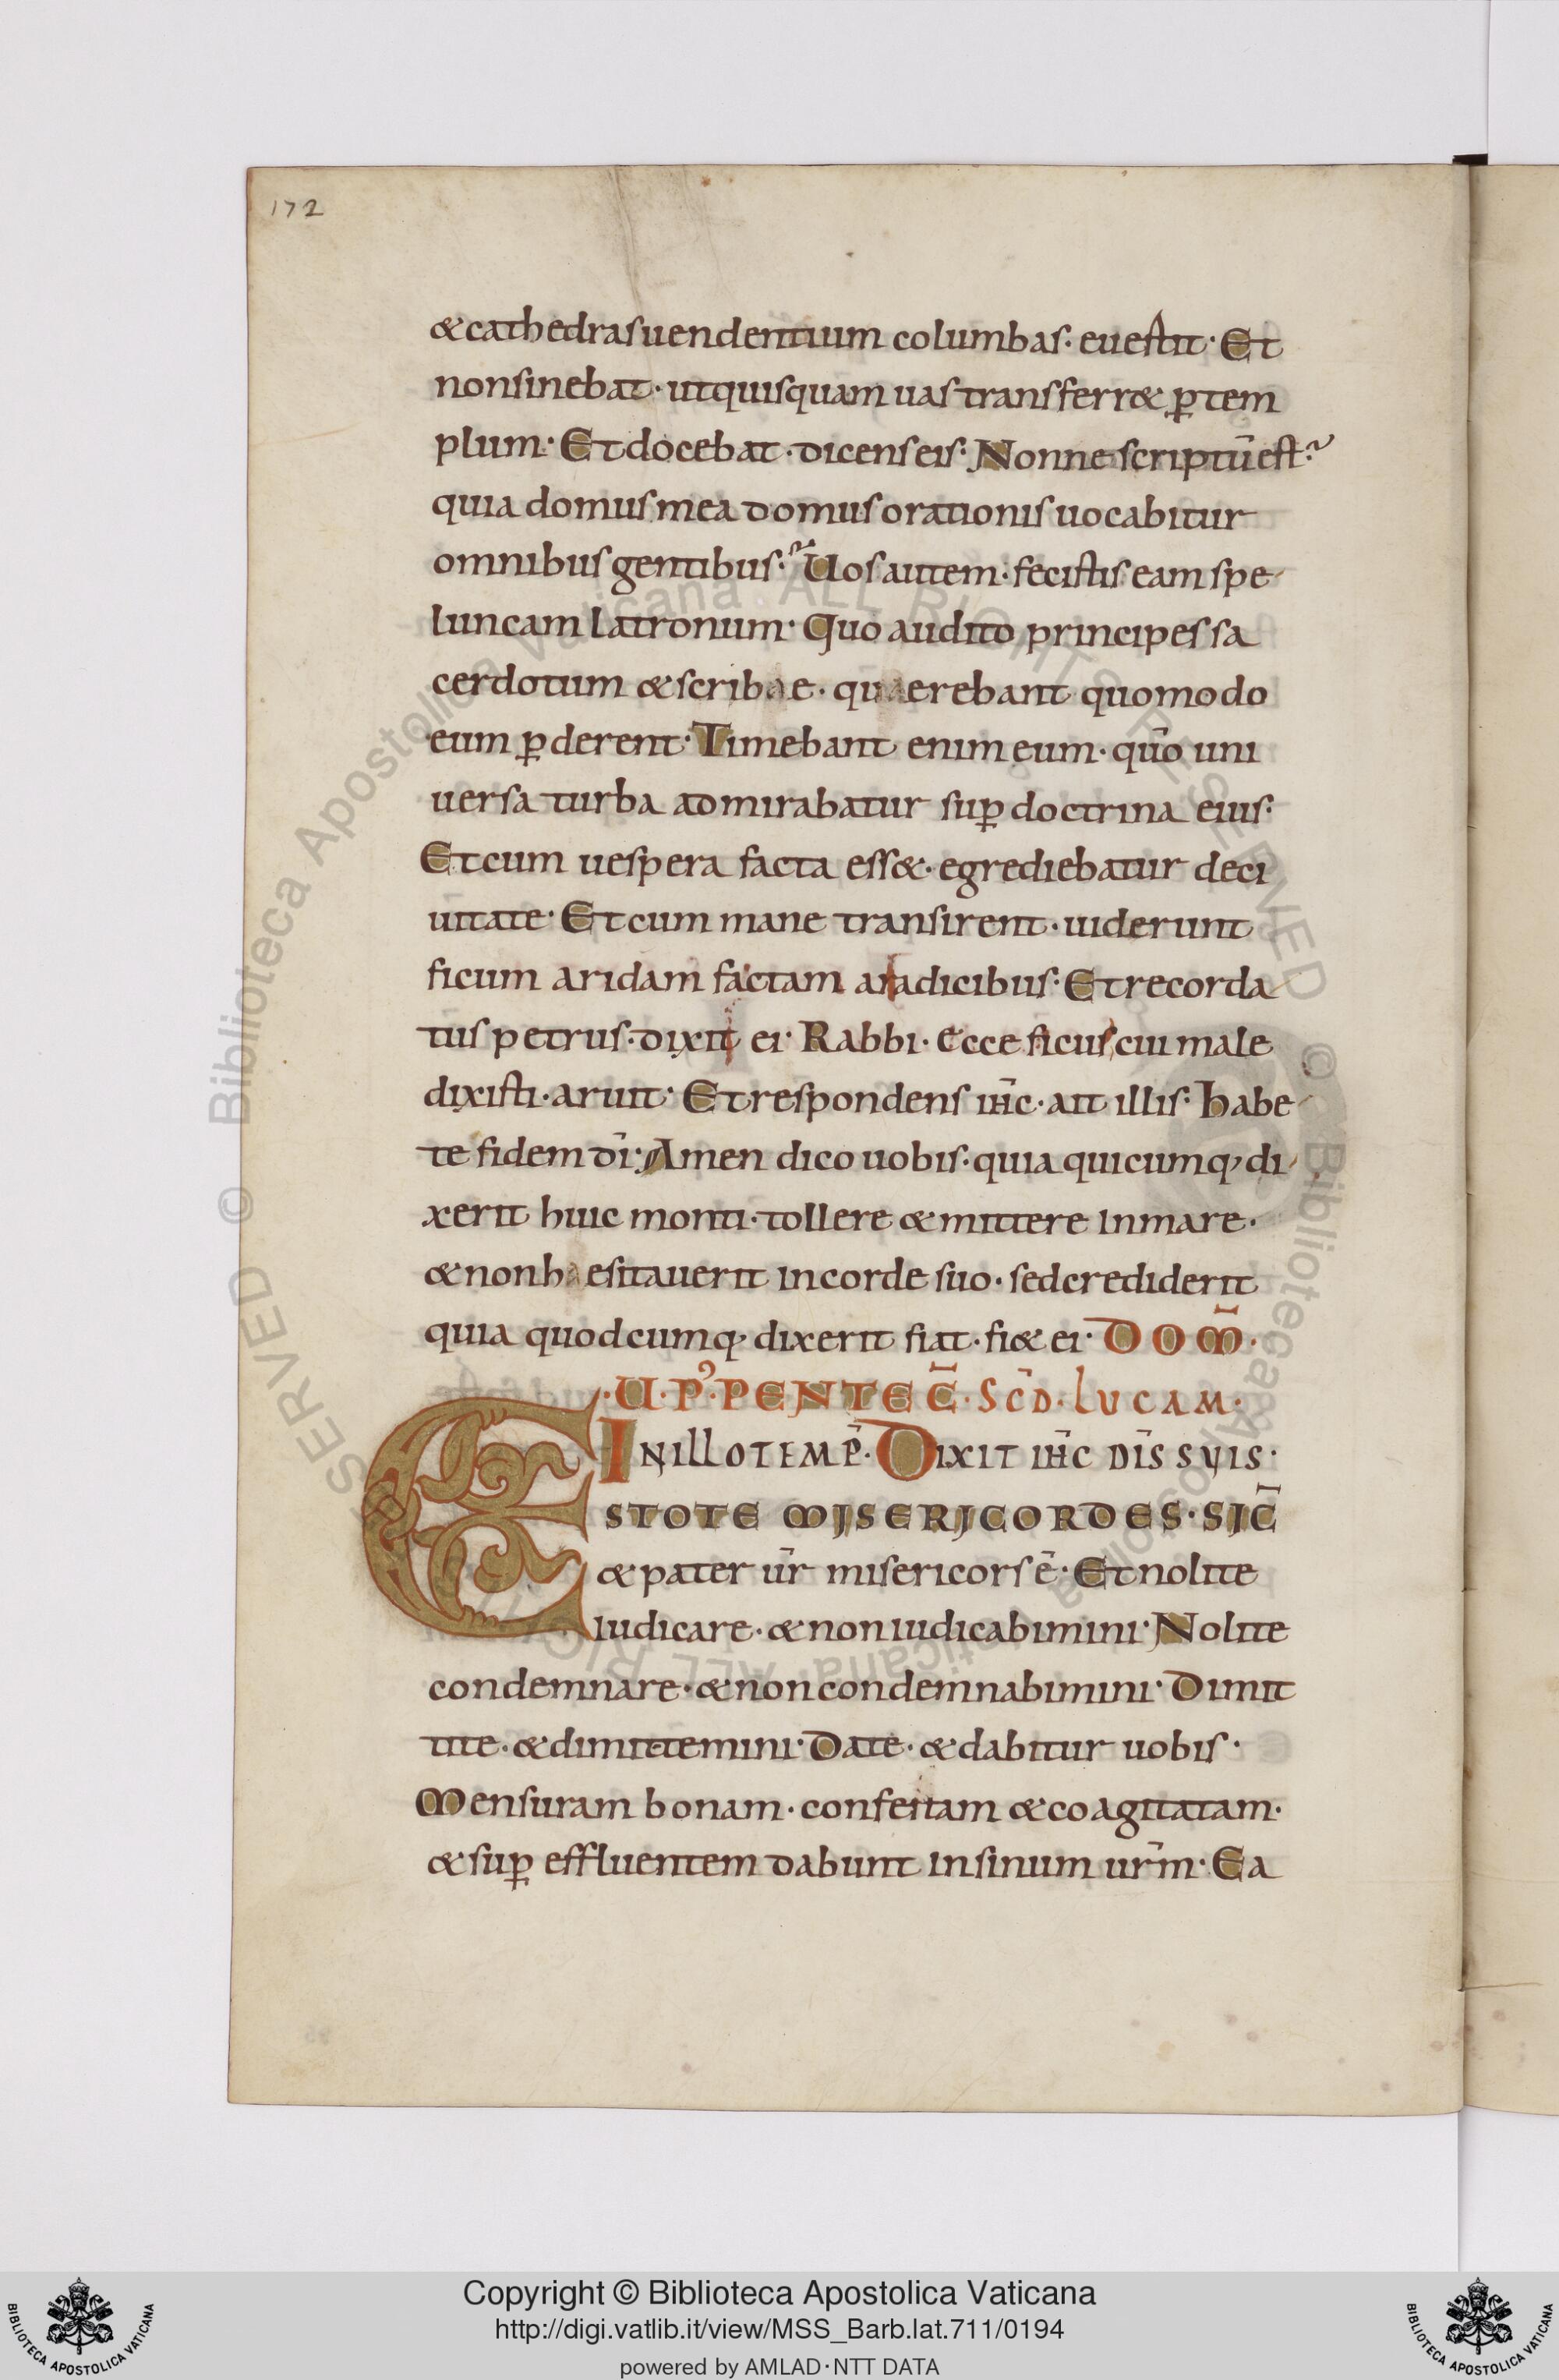 172
& cathedras uendentium columbas · euertit · Et
non sinebat · ut quisquam uas transferr& p̲ tem
plum · Et docebat · dicens eis · Nonne scriptū est ·
quia domus mea domus orationis uocabitur
omnibus gentibus · Uos autem · fecistis eam spe
luncam latronum · Quo audito principes sa
cerdotum & scribae · quaerebant quomodo
eum p̲derent · Timebant enim eum · qūo uni
uersa turba admirabatur sup̲ doctrina eius ·
Et cum uespera facta ess& · egrediebatur de ci
uitate · Et cum mane transirent · uiderunt
ficum aridam factam a radicibus · Et recorda
tus petrus · dixit ei · Rabbi · ecce ficus cui male
dixisti · aruit · Et respondens ih̄c · ait illis · Habe
te fidem dī · Amen dico uobis · quia quicumq; di
xerit huic monti · tollere & mittere in mare ·
& non haesitauerit in corde suo · sed crediderit
quia quodcumq; dixerit fiat · fi& ei · DOM̄ ·
· U · P' · PENTEC̄ · SC̄D · LUCAM ·
IN ILLO TEMP̄ · DIXIT IH̄C DIS̄ SUIS ·
ESTOTE MISERICORDES · SIC̄
& pater ur̄ misericors ē · Et nolite
iudicare · & non iudicabimini · Nolite
condemnare · & non condemnabimini · Dimit
tite · & dimittemini · Date · & dabitur uobis ·
Mensuram bonam · confertam & coagitatam ·
& sup̲ effluentem dabunt in sinum ur̄m · Ea
© Biblioteca Apostolica Vaticana ALL RIGHTS RESERVED
© Biblioteca Apostolica Vaticana ALL RIGHTS RESERVED
Copyright © Biblioteca Apostolica Vaticana
http://digi.vatlib.it/view/MSS_Barb.lat.711/0194
powered by AMLAD·NTT DATA
BIBLIOTECA APOSTOLICA VATICANA
BIBLIOTECA APOSTOLICA VATICANA